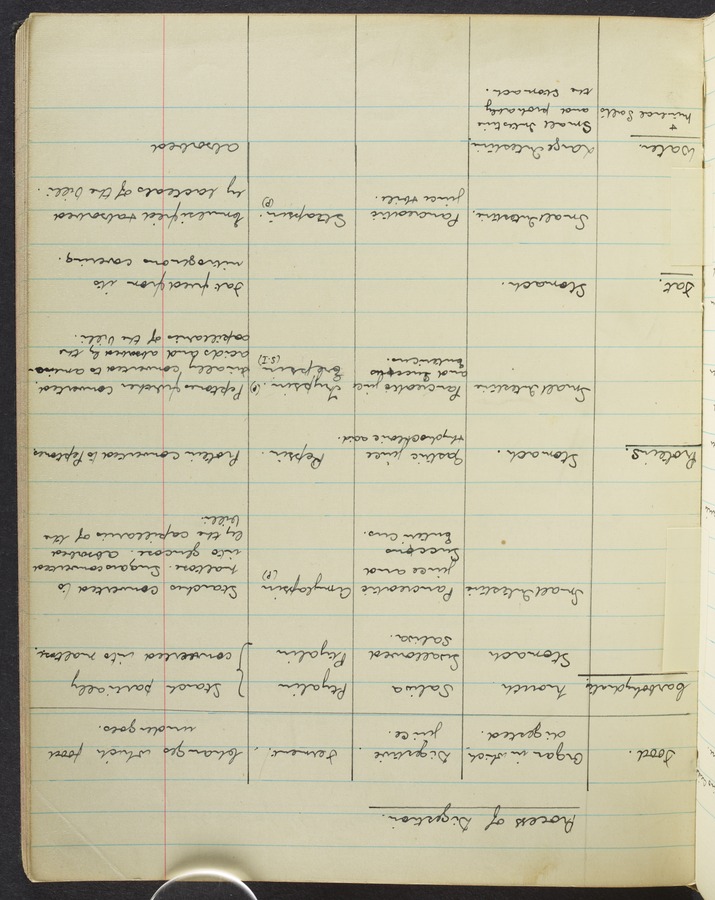 Process of Digestion.
Food. Organ in which digested. Digestive juice. Ferment. Changes which food undergoes.
Carbohydrates mouth Saliva Ptyalin } Starch partially
Stomach Swallowed Saliva. Ptyalin } converted into maltose.
Small Intestine Pancreatic Amylopsin (P) Starches converted to
juice and maltose. Sugars converted
Succus into glucose. absorbed
Entericus. by the capillaries of the
Villi.
Proteins. Stomach. Gastric juice Pepsin. Protein converted to Peptones
Hydrochloric acid.
Small Intestine Pancreatic juice Trypsin. (P) Peptones further converted.
and Succus Erepsin (S.I) finally converted to amino-
Entericus. acids and absorbed by the
capillaries of the Villi.
Fat. Stomach. Fat freed from its
nitrogenous covering.
Small Intestine. Pancreatic Steapsin. (P) Emulsified + absorbed
juice + bile. by lacteals of the Villi.
Water. Large Intestine. absorbed
+ Small Intestine
mineral Salts and probably
the Stomach.